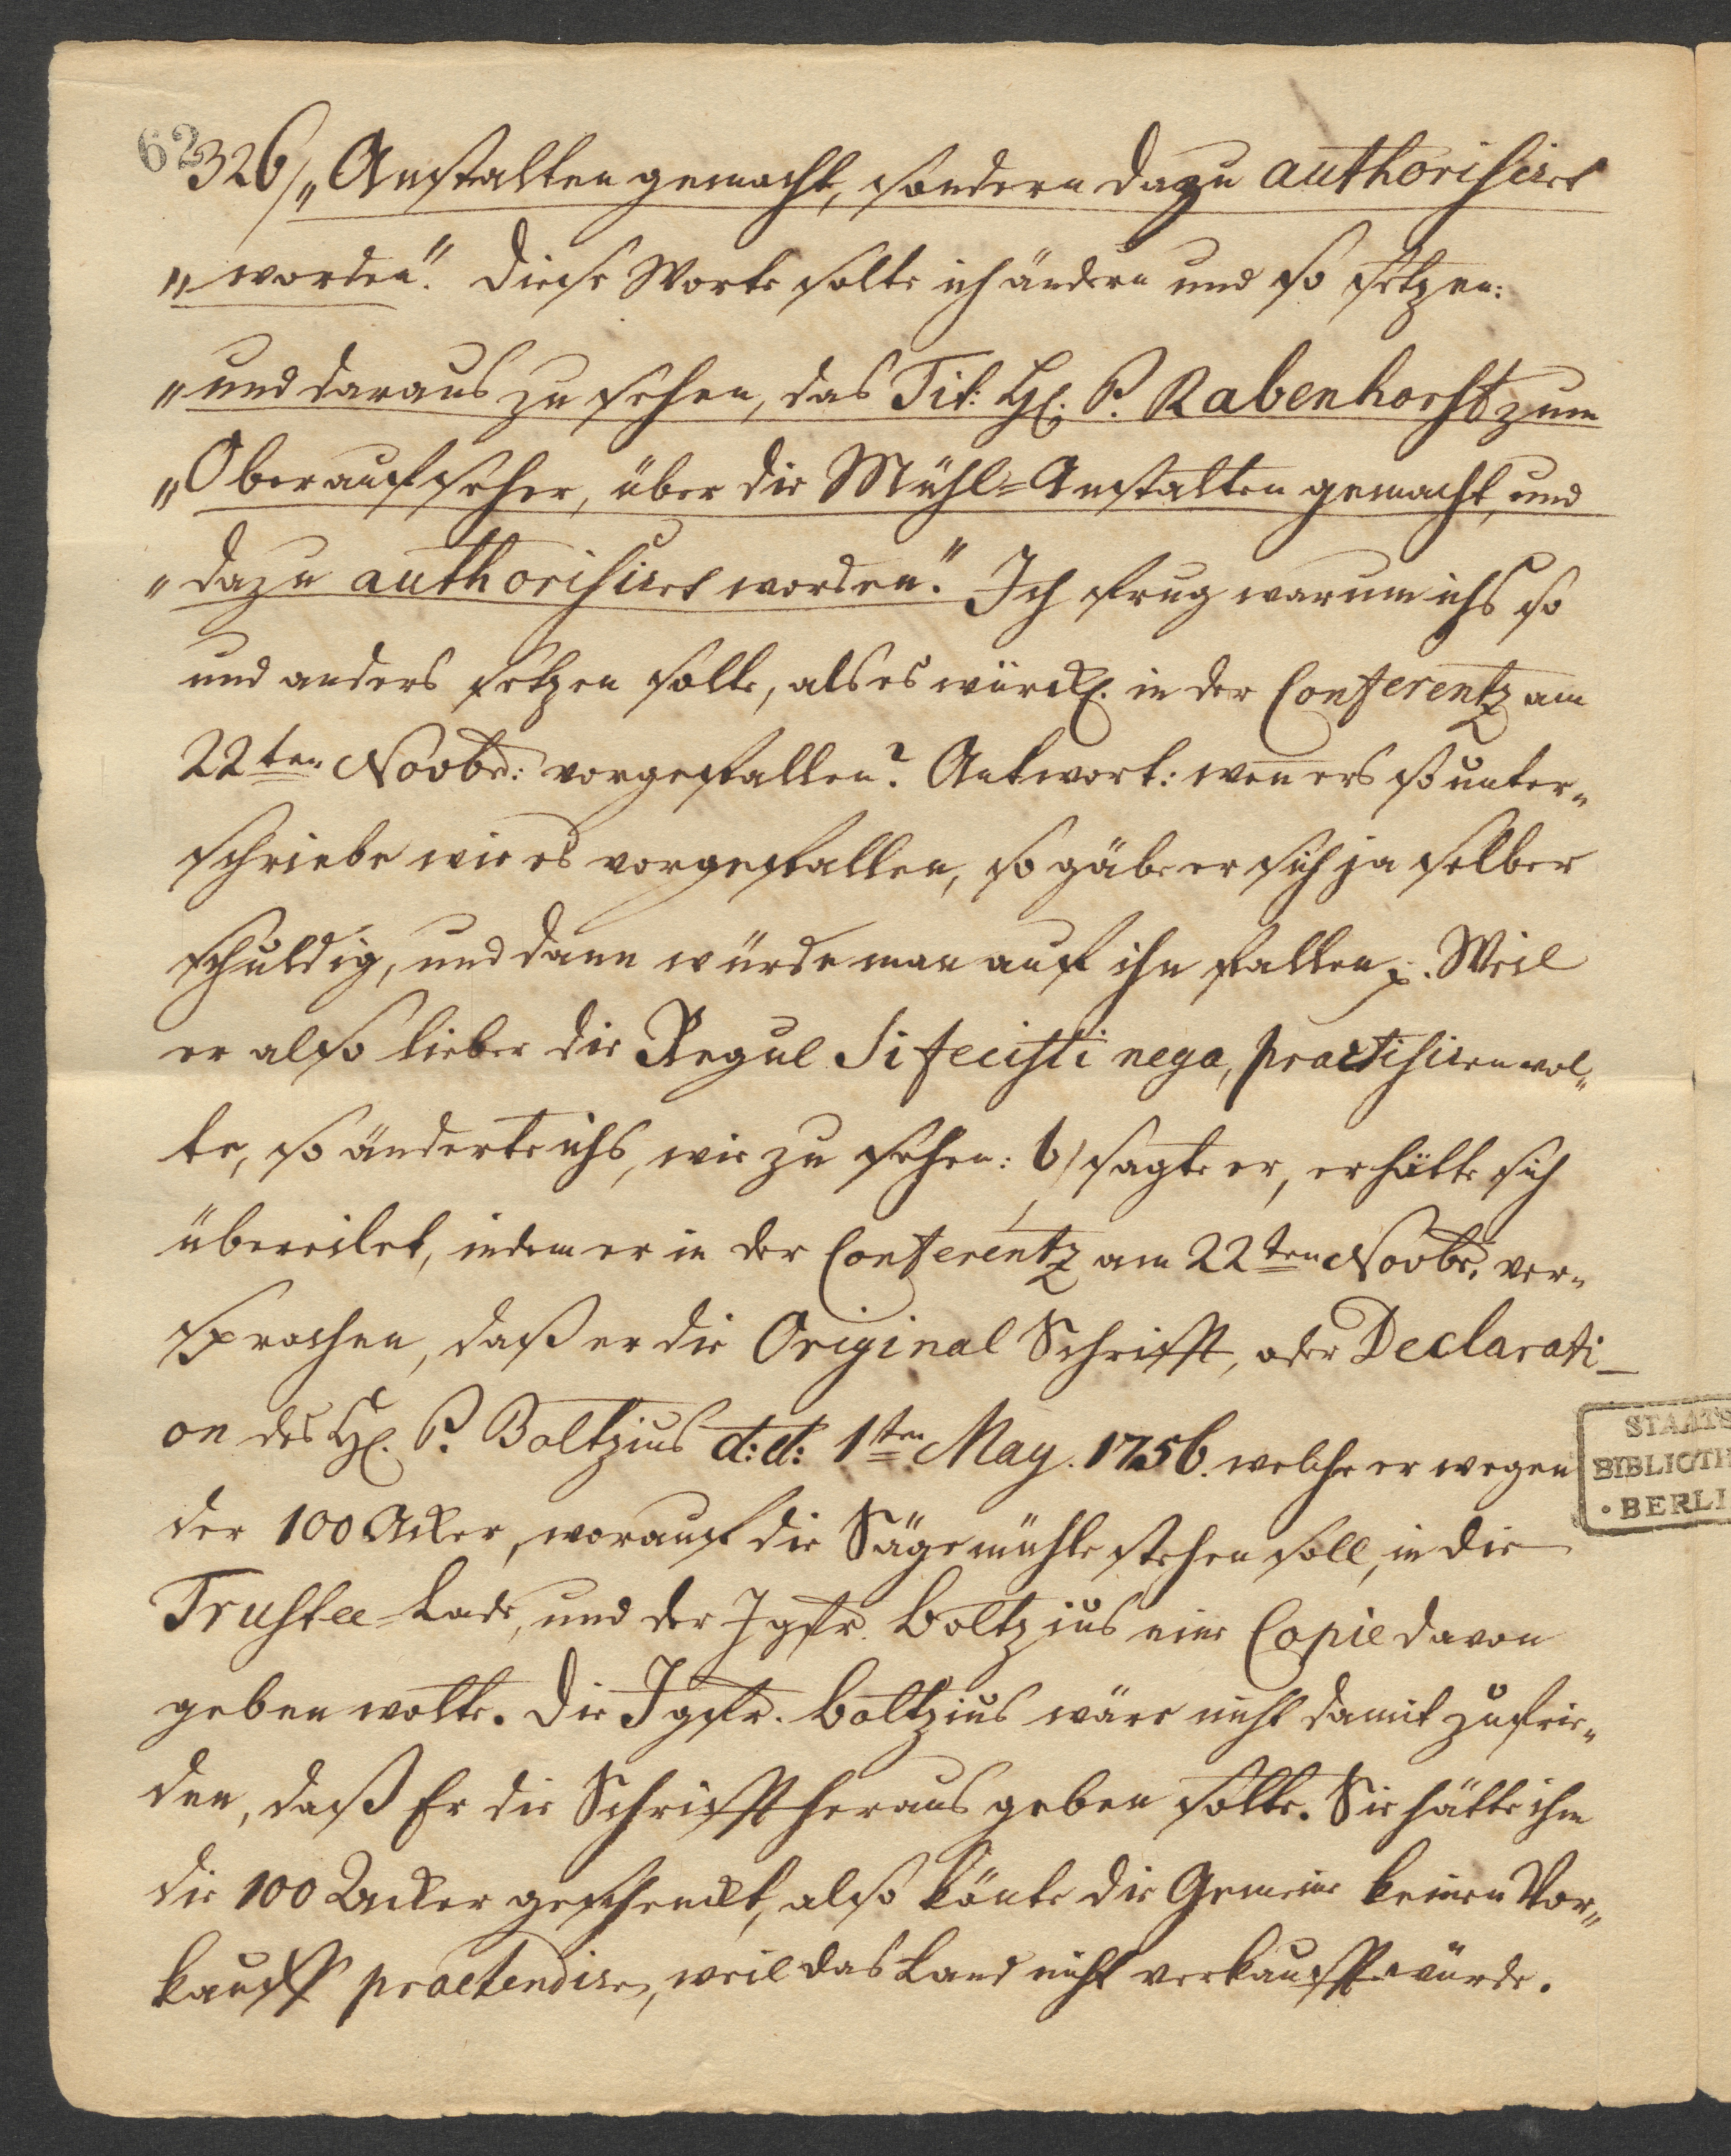 62
326/ „Anstalten gemacht, sondern dazu authorisiret
„worden“. Diese Worte solte ich ändern und so setzen:
„und daraus zu sehen, das Tit: H. P. Rabenhorst zum
„Oberaufseher, über die Mühl=Anstalten gemacht, und
„dazu authorisiret worden“. Ich frug warum ichs so
und anders setzen solte, als es würckl. in der Conferentz am
22ten Novbr: vorgefallen? Antwort: wen ers so unter„
schriebe wie es vorgefallen, so gäbe er sich ja selber
schuldig, und dann würde man auf ihn fallen p. Weil
er also lieber die Regul Si fecisti nega, practisiren wol„
te, so änderte ichs, wie zu sehen: b) sagte er, er hätte sich
übereilet, indem er in der Conferentz am 22ten Novbr. ver„
sprochen, daß er die Original Schrifft, oder Declarati_
on des H. P. Boltzius d: d: 1ten May. 1756. welche er wegen
der 100 Acker, worauf die Sägemühle stehen soll, in die
Trustee=Lade, und der Jgfr. Boltzius eine Copie davon
geben wolte. Die Jgfr. Boltzius wäre nicht damit zufrie„
den, daß Er die Schrifft heraus geben solte. Sie hätte ihm
die 100 Acker geschenckt, also könte die Gemeine keinen Vor„
kauff praetendiren, weil das Land nicht verkaufft würde.
STAATS
BIBLIOTH
BERLI